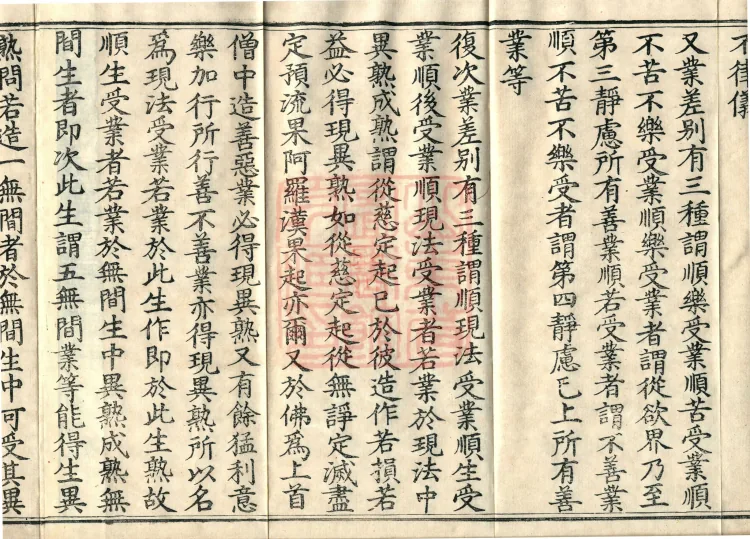 不律儀
又業差別有三種謂順樂受業順苦受業順
不苦不樂受業順樂受業者謂從欲界乃至
第三靜慮所有善業順苦受業者謂不善業
順不苦不樂受者謂第四靜慮已上所有善
業等
復次業差別有三種謂順現法受業順生受
業順後受業順現法受業者若業於現法中
異熟成熟謂從慈定起已於彼造作若損若
益必得現異熟如從慈定起從無諍定滅盡
定預流果阿羅漢果起亦爾又於佛為上首
僧中造善惡業必得現異熟又有餘猛利意
樂加行所行善不善業亦得現異熟所以名
為現法受業若業於此生作即於此生熟故
順生受業者若業於無間生中異熟成熟無
間生者即次此生謂五無間業等能得生異
熟問若造一無間者於無間生中可受其異